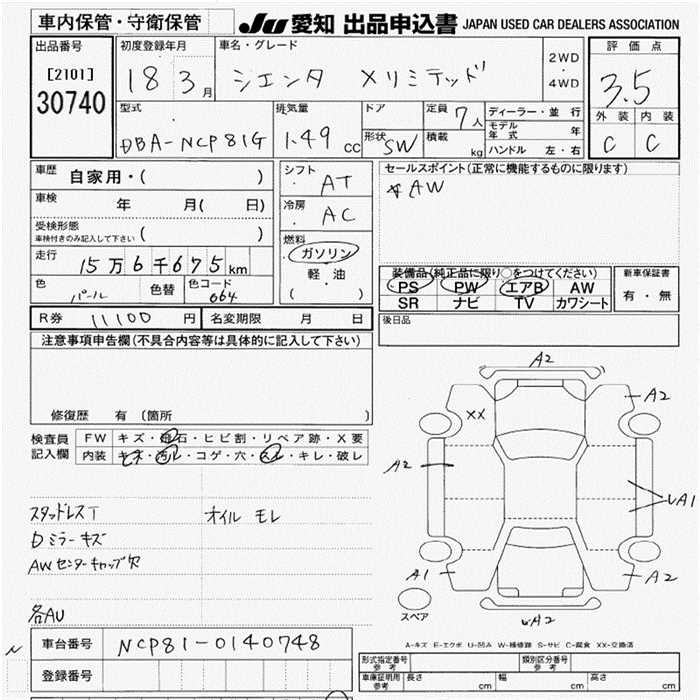 車内保管・守衛保管
JU 愛知 出品申込書 JAPAN USED CAR DEALERS ASSOCIATION
出品番号
[2101]
30740
初度登録年月
18 3月
車名・グレード
シエンタ Xリミテッド
2WD
・
4WD
評価点
3.5
外装 内装
C C
型式
DBA-NCP81G
排気量
1.49 cc
ドア
形状 SW
定員 7人
積載 kg
ディーラー・並行
モデル年式 年
ハンドル 左・右
車歴
自家用・( )
車検
年 月( 日)
受検形態
車検付きのみ記入して下さい ( )
走行
15万6千675km
色
パール
色替
色コード
064
シフト
AT
冷房
AC
燃料
ガソリン
軽油
( )
セールスポイント(正常に機能するものに限ります)
AW
装備品(純正品に限り○をつけてください)
PS PW エアB AW
SR ナビ TV カワシート
新車保証書
有・無
R券 11100円
名変期限 月 日
後日品
注意事項申告欄(不具合内容等は具体的に記入して下さい)
修復歴 有(箇所 )
検査員
記入欄
FW キズ・飛石・ヒビ割・リペア跡・X要
内装 キズ・汚レ・コゲ・穴・スレ・キレ・破レ
スタッドレスT
オイルモレ
Dミラーキズ
AWセンターキャップ欠
各AU
A2
XX
A2
A2
UA1
A1
A2
UA2
スペア
A-キズ E-エクボ U-凹み W-補修跡 S-サビ C-腐食 XX-交換済
車台番号 NCP81-0140748
登録番号
型式指定番号
参考
類別区分番号
参考
車庫証明用
参考
長さ cm
幅 cm
高さ cm